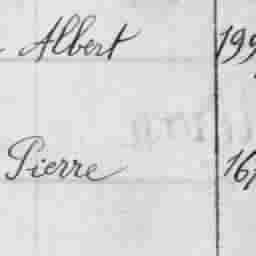 Albert 199
Pierre 16